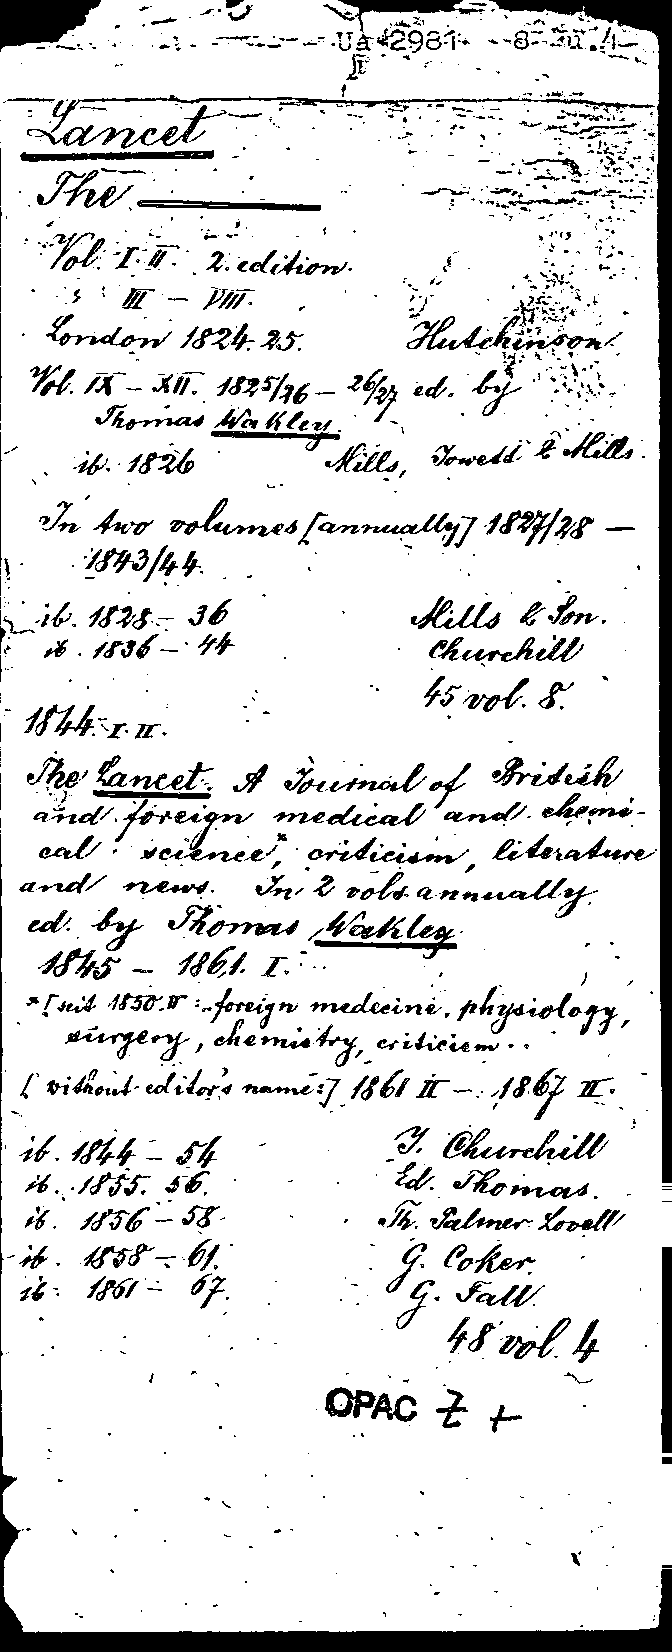 Ua 2981 8° u. 4
II
Lancet
The ———
Vol. I. II. 2. edition.
" III — VIII.
London 1824. 25. Hutchinson
Vol. IX — XII. 1825/26 — 26/27 ed. by
Thomas Wakley.
ib. 1826 Mills, Jowett & Mills.
In two volumes [annually] 1827/28 —
1843/44.
ib. 1828 — 36 Mills & Son.
ib. 1836 — 44 Churchill
45 vol. 8.
1844. I. II.
The Lancet. A Journal of British
and foreign medical and chemi-
cal science*, criticism, literature
and news. In 2 vols annually
ed. by Thomas Wakley
1845 — 1861. I.
*[seit 1850. II: ..foreign medecine, physiology,
surgery, chemistry, criticism..
[without editor's name:] 1861 II — 1867 II.
ib. 1844 — 54 J. Churchill
ib. 1855. 56. Ed. Thomas.
ib. 1856 — 58 Th. Palmer Lovell
ib. 1858 — 61. G. Coker
ib. 1861 — 67. G. Fall
48 vol. 4
OPAC Z +